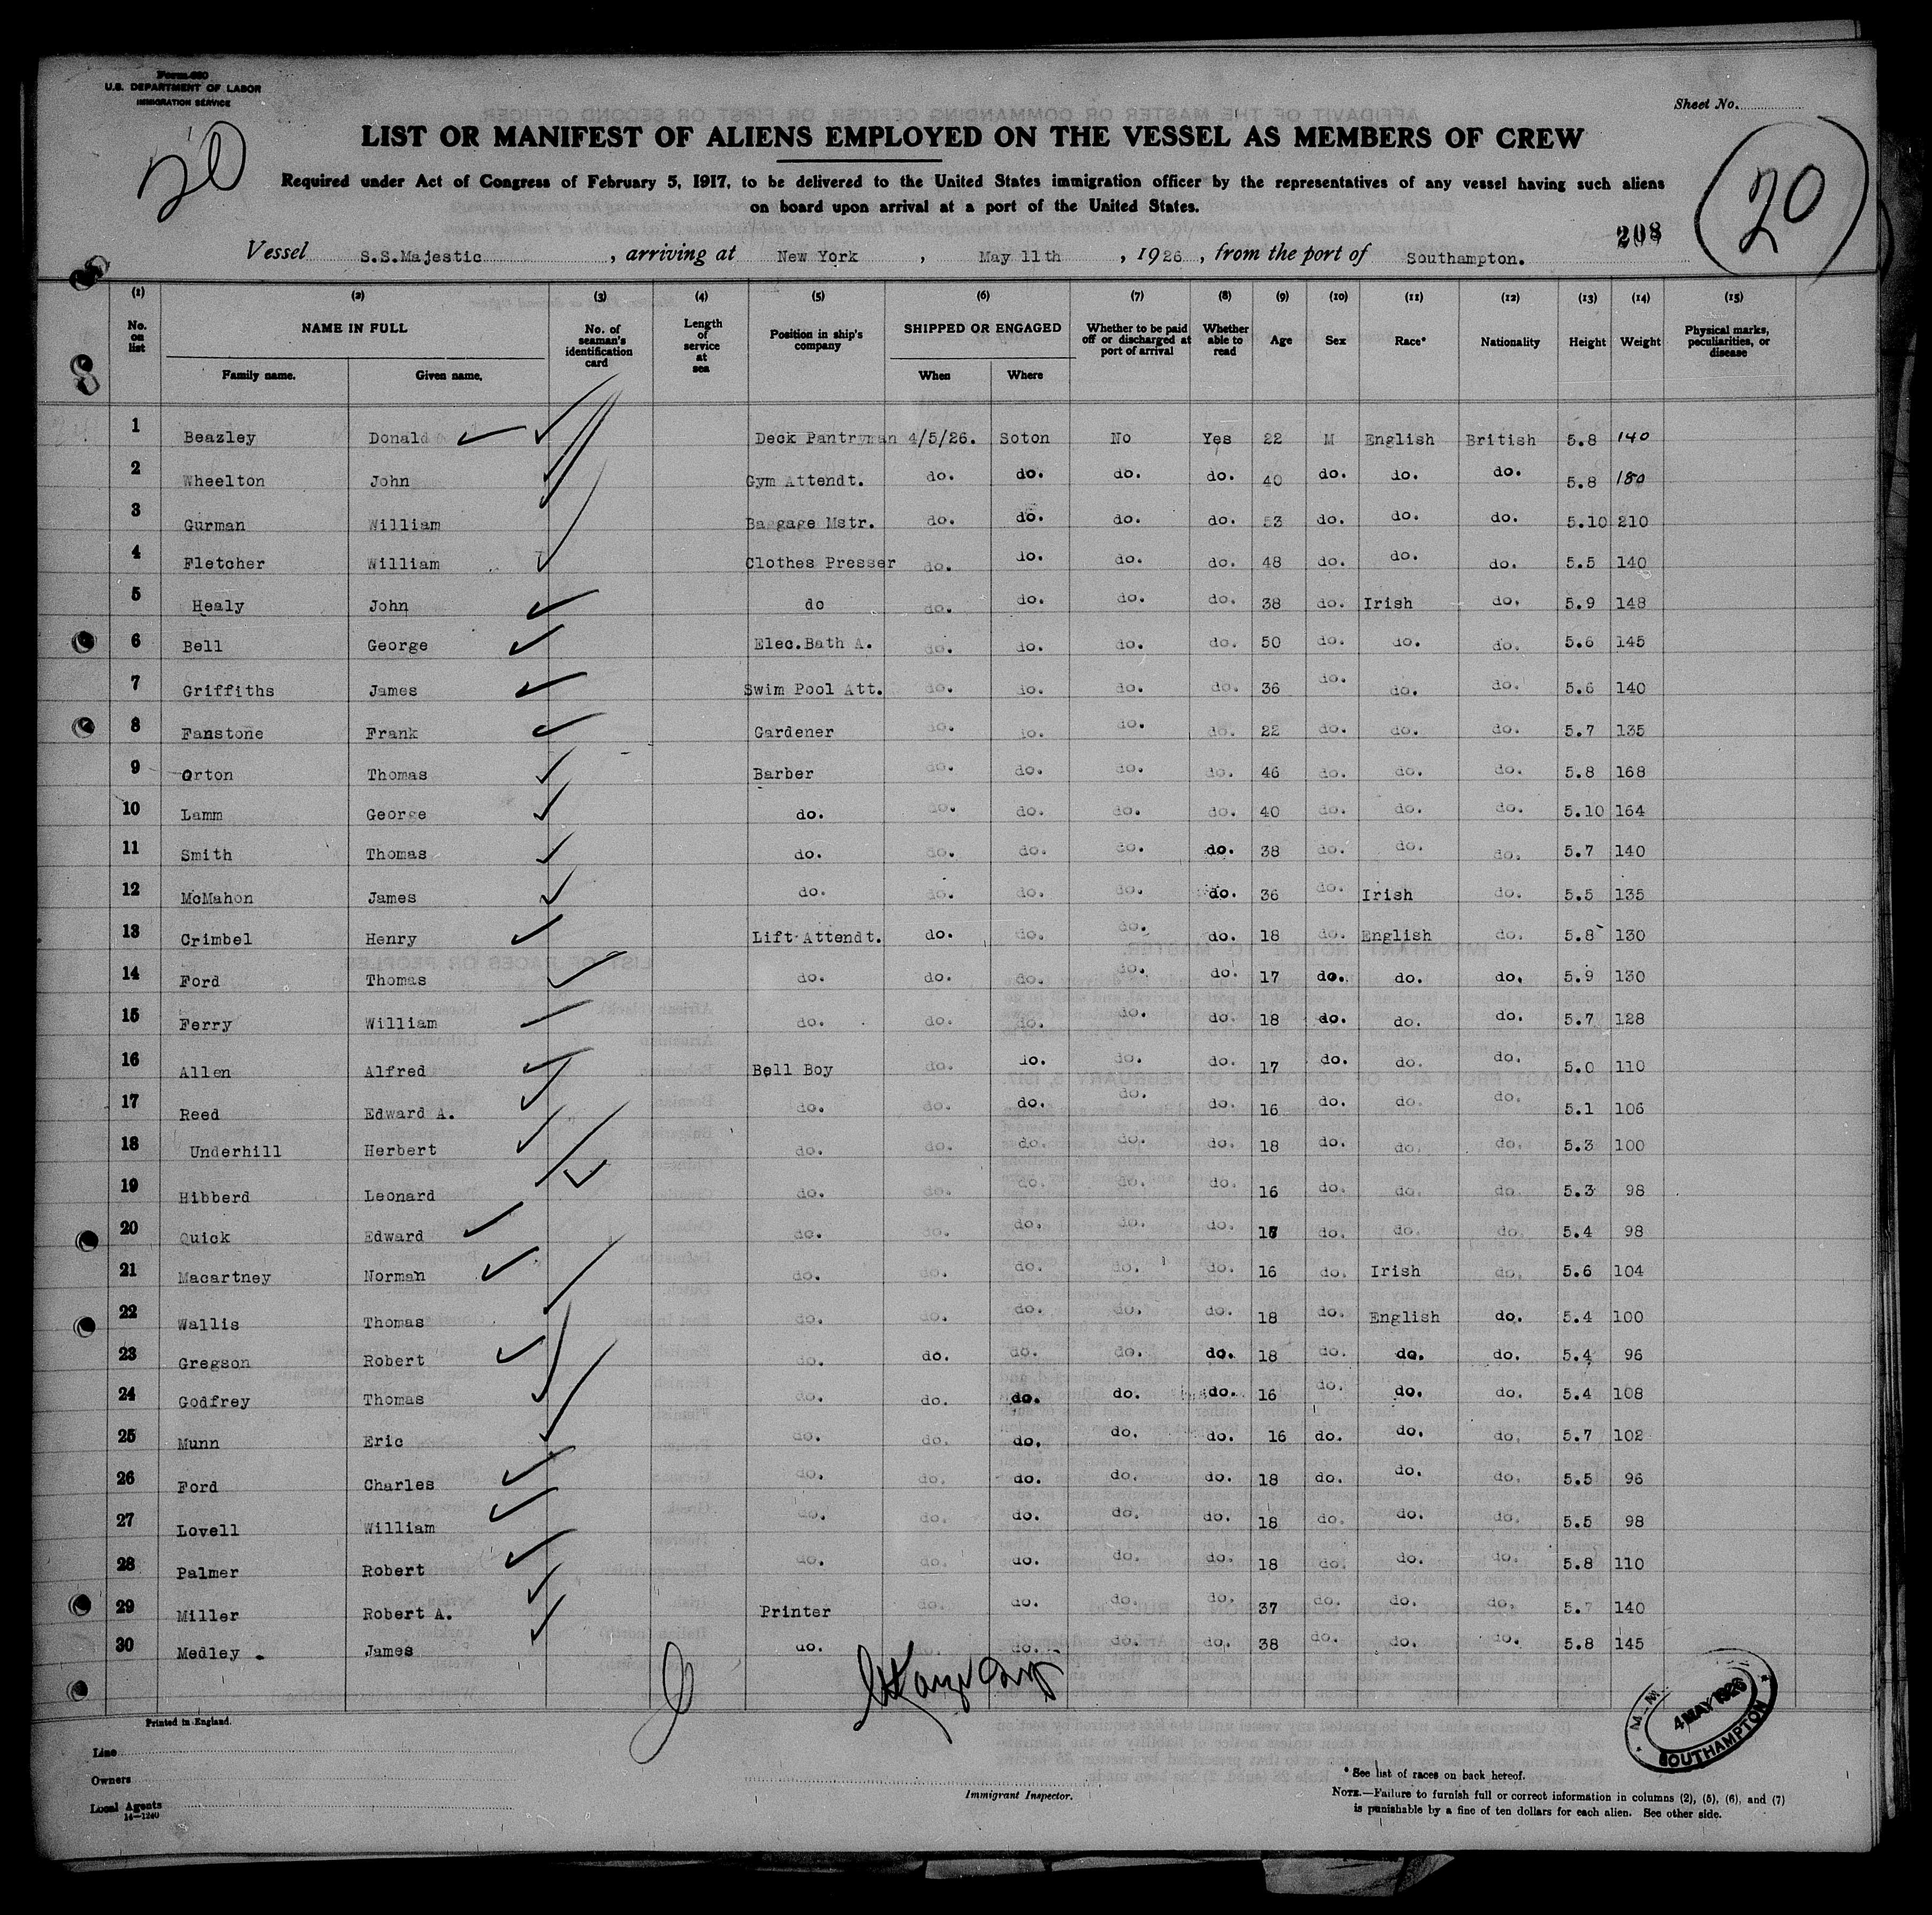 Form 680
U.S. DEPARTMENT OF LABOR
IMMIGRATION SERVICE
Sheet No.
20
LIST OR MANIFEST OF ALIENS EMPLOYED ON THE VESSEL AS MEMBERS OF CREW
20
Required under Act of Congress of February 5, 1917, to be delivered to the United States immigration officer by the representatives of any vessel having such aliens
on board upon arrival at a port of the United States.
208
Vessel S.S.Majestic, arriving at New York, May 11th, 1926, from the port of Southampton.
(1) (2) (3) (4) (5) (6) (7) (8) (9) (10) (11) (12) (13) (14) (15)
No. on list NAME IN FULL Family name. Given name. No. of seaman's identification card Length of service at sea Position in ship's company SHIPPED OR ENGAGED When Where Whether to be paid off or discharged at port of arrival Whether able to read Age Sex Race* Nationality Height Weight Physical marks, peculiarities, or disease
1 Beazley Donald Deck Pantryman 4/5/26. Soton No Yes 22 M English British 5.8 140
2 Wheelton John Gym Attendt. do. do. do. do. 40 do. do. do. 5.8 180
3 Gurman William Baggage Mstr. do. do. do. do. 53 do. do. do. 5.10 210
4 Fletcher William Clothes Presser do. do. do. do. 48 do. do. do. 5.5 140
5 Healy John do do. do. do. do. 38 do. Irish do. 5.9 148
6 Bell George Elec.Bath A. do. do. do. do. 50 do. do. do. 5.6 145
7 Griffiths James Swim Pool Att. do. do. do. do. 36 do. do. do. 5.6 140
8 Fanstone Frank Gardener do. do. do. do. 22 do. do. do. 5.7 135
9 Orton Thomas Barber do. do. do. do. 46 do. do. do. 5.8 168
10 Lamm George do. do. do. do. do. 40 do. do. do. 5.10 164
11 Smith Thomas do. do. do. do. do. 38 do. do. do. 5.7 140
12 McMahon James do. do. do. do. do. 36 do. Irish do. 5.5 135
13 Crimbel Henry Lift Attendt. do. do. do. do. 18 do. English do. 5.8 130
14 Ford Thomas do. do. do. do. do. 17 do. do. do. 5.9 130
15 Ferry William do. do. do. do. do. 18 do. do. do. 5.7 128
16 Allen Alfred Bell Boy do. do. do. do. 17 do. do. do. 5.0 110
17 Reed Edward A. do. do. do. do. do. 16 do. do. do. 5.1 106
18 Underhill Herbert do. do. do. do. do. 18 do. do. do. 5.3 100
19 Hibberd Leonard do. do. do. do. do. 16 do. do. do. 5.3 98
20 Quick Edward do. do. do. do. do. do. do. do. 5.4 98
21 Macartney Norman do. do. do. do. do. 16 do. Irish do. 5.6 104
22 Wallis Thomas do. do. do. do. do. 18 do. English do. 5.4 100
23 Gregson Robert do. do. do. do. do. 18 do. do. do. 5.4 96
24 Godfrey Thomas do. do. do. do. do. 16 do. do. do. 5.4 108
25 Munn Eric do. do. do. do. do. 16 do. do. do. 5.7 102
26 Ford Charles do. do. do. do. do. 18 do. do. do. 5.5 96
27 Lovell William do. do. do. do. do. 18 do. do. do. 5.5 98
28 Palmer Robert do. do. do. do. do. 18 do. do. do. 5.8 110
29 Miller Robert A. Printer do. do. do. do. 37 do. do. do. 5.7 140
30 Medley James do. do. do. do. do. 38 do. do. do. 5.8 145
4 MAY 1926
SOUTHAMPTON
Printed in England.
Line
Owners
Local Agents
14-1240
Immigrant Inspector.
*See list of races on back hereof.
NOTE.—Failure to furnish full or correct information in columns (2), (5), (6), and (7)
is punishable by a fine of ten dollars for each alien. See other side.